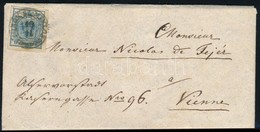 Monsieur
Monsieur Nicolas de Fejér
à
Alservorstadt
Kasernengasse Nro 96.
Vienne